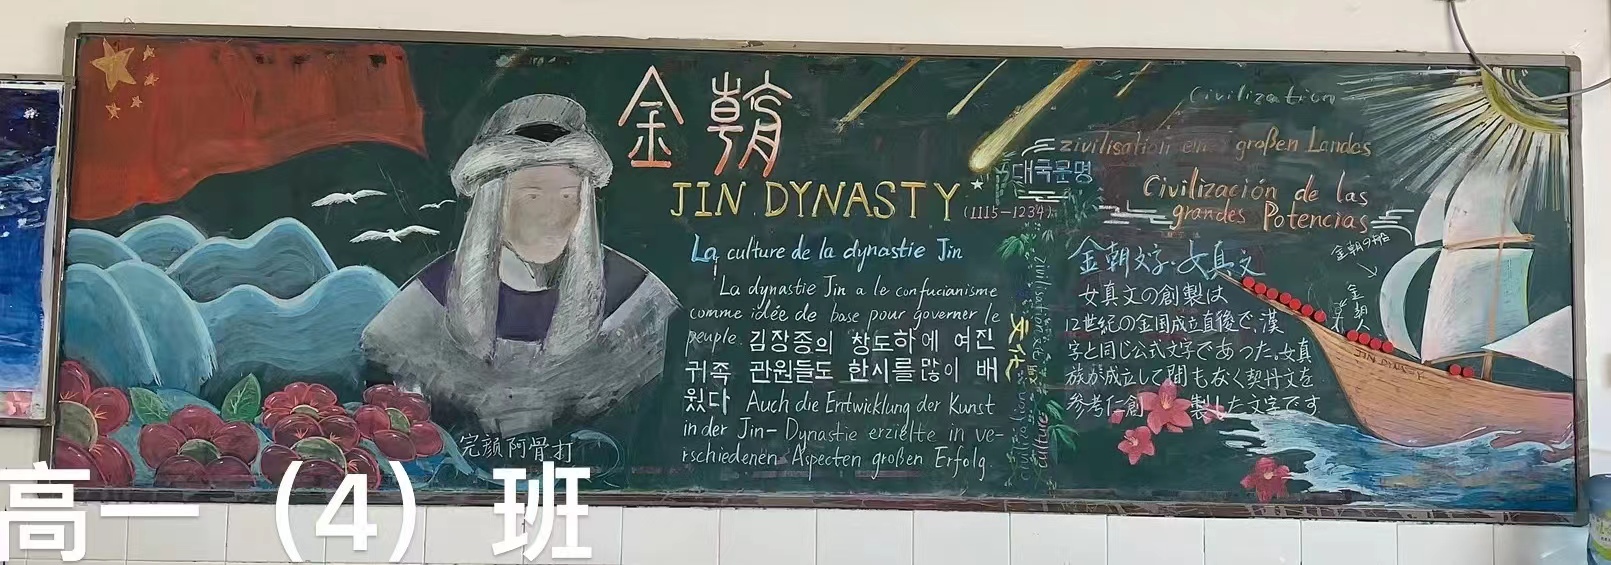 金朝
JIN DYNASTY (1115-1234)
La culture de la dynastie Jin
La dynastie Jin a le confucianisme
comme idée de base pour governer le
peuple. 김장종의 창도하에 여진
귀족 관원들도 한시를 많이 배
웠다 Auch die Entwicklung der Kunst
in der Jin-Dynastie erzielte in ve-
rschiedenen Aspecten großen Erfolg.
完颜阿骨打
Civilization
zivilisation eines großen Landes
대국문명
Civilización de las
grandes Potencias
文化
culture
金朝文字·女真文
女真文の創製は
12世紀の金国成立直後で、漢
字と同じ公式文字であった。女真
族が成立して間もなく契丹文を
参考に創製した文字です
金朝の船
金朝人
JIN DYNASTY
高一（4）班